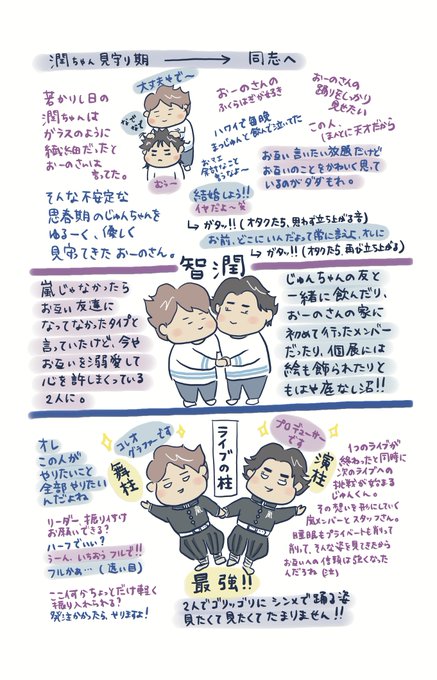 潤ちゃん見守り期 → 同志へ
大丈夫で〜
なでなで
むぅー
若かりし日の
潤ちゃんは
ガラスのように
繊細だったと
おーのさんは
言ってた。
そんな不安定な
思春期のじゅんちゃんを
ゆるーく、優しく
見守ってきたおーのさん。
おーのさんの
ふくらはぎが好き
おーのさんの
踊りをしっかり
見せたい
ハワイで毎晩
まつじゅんと飲んで泣いてた
この人、
ほんとに天才だから
お互い言いたい放題だけど
お互いのことをかわいく思って
いるのがダダもれ。
結婚しよう!!
イヤだよ〜笑
↳ガタッ!! (オタクたち、思わず立ち上がる音)
お前、どこにいんだよって常に言えよ、オレに
↳ガタッ!! (オタクたち、再び立ち上がる)
智潤
嵐じゃなかったら
お互い友達に
なってなかったタイプと
言っていたけど、今や
お互いを溺愛して
心を許しまくっている
2人に。
じゅんちゃんの友と
一緒に飲んだり、
おーのさんの家に
初めて行ったメンバー
だったり、個展には
絵も飾られたりと
もはや底なし沼!!
ライブの柱
コレオグラファーです
舞柱
プロデューサーです
演柱
オレ
この人が
やりたいこと
全部やりたい
んだよね
リーダー、振り付け
お願いできる?
ハーフでいい?
うーん、いちおうフルで!!
フルかぁ… (遠い目)
ここ何かちょっとだけ軽く
振り入れられる?
発注かかったら、やりますよ!
1つのライブが
終わったと同時に
次のライブへの
挑戦が始まる
じゅんくん。
その想いを形にしていく
嵐メンバーとスタッフさん。
睡眠もプライベートも削って
削って、そんな姿を見てきたから
お互いへの信頼は強くなった
んだろね (泣)
最強!!
2人でゴリッゴリにシンメで踊る姿
見たくて見たくてたまりません!!